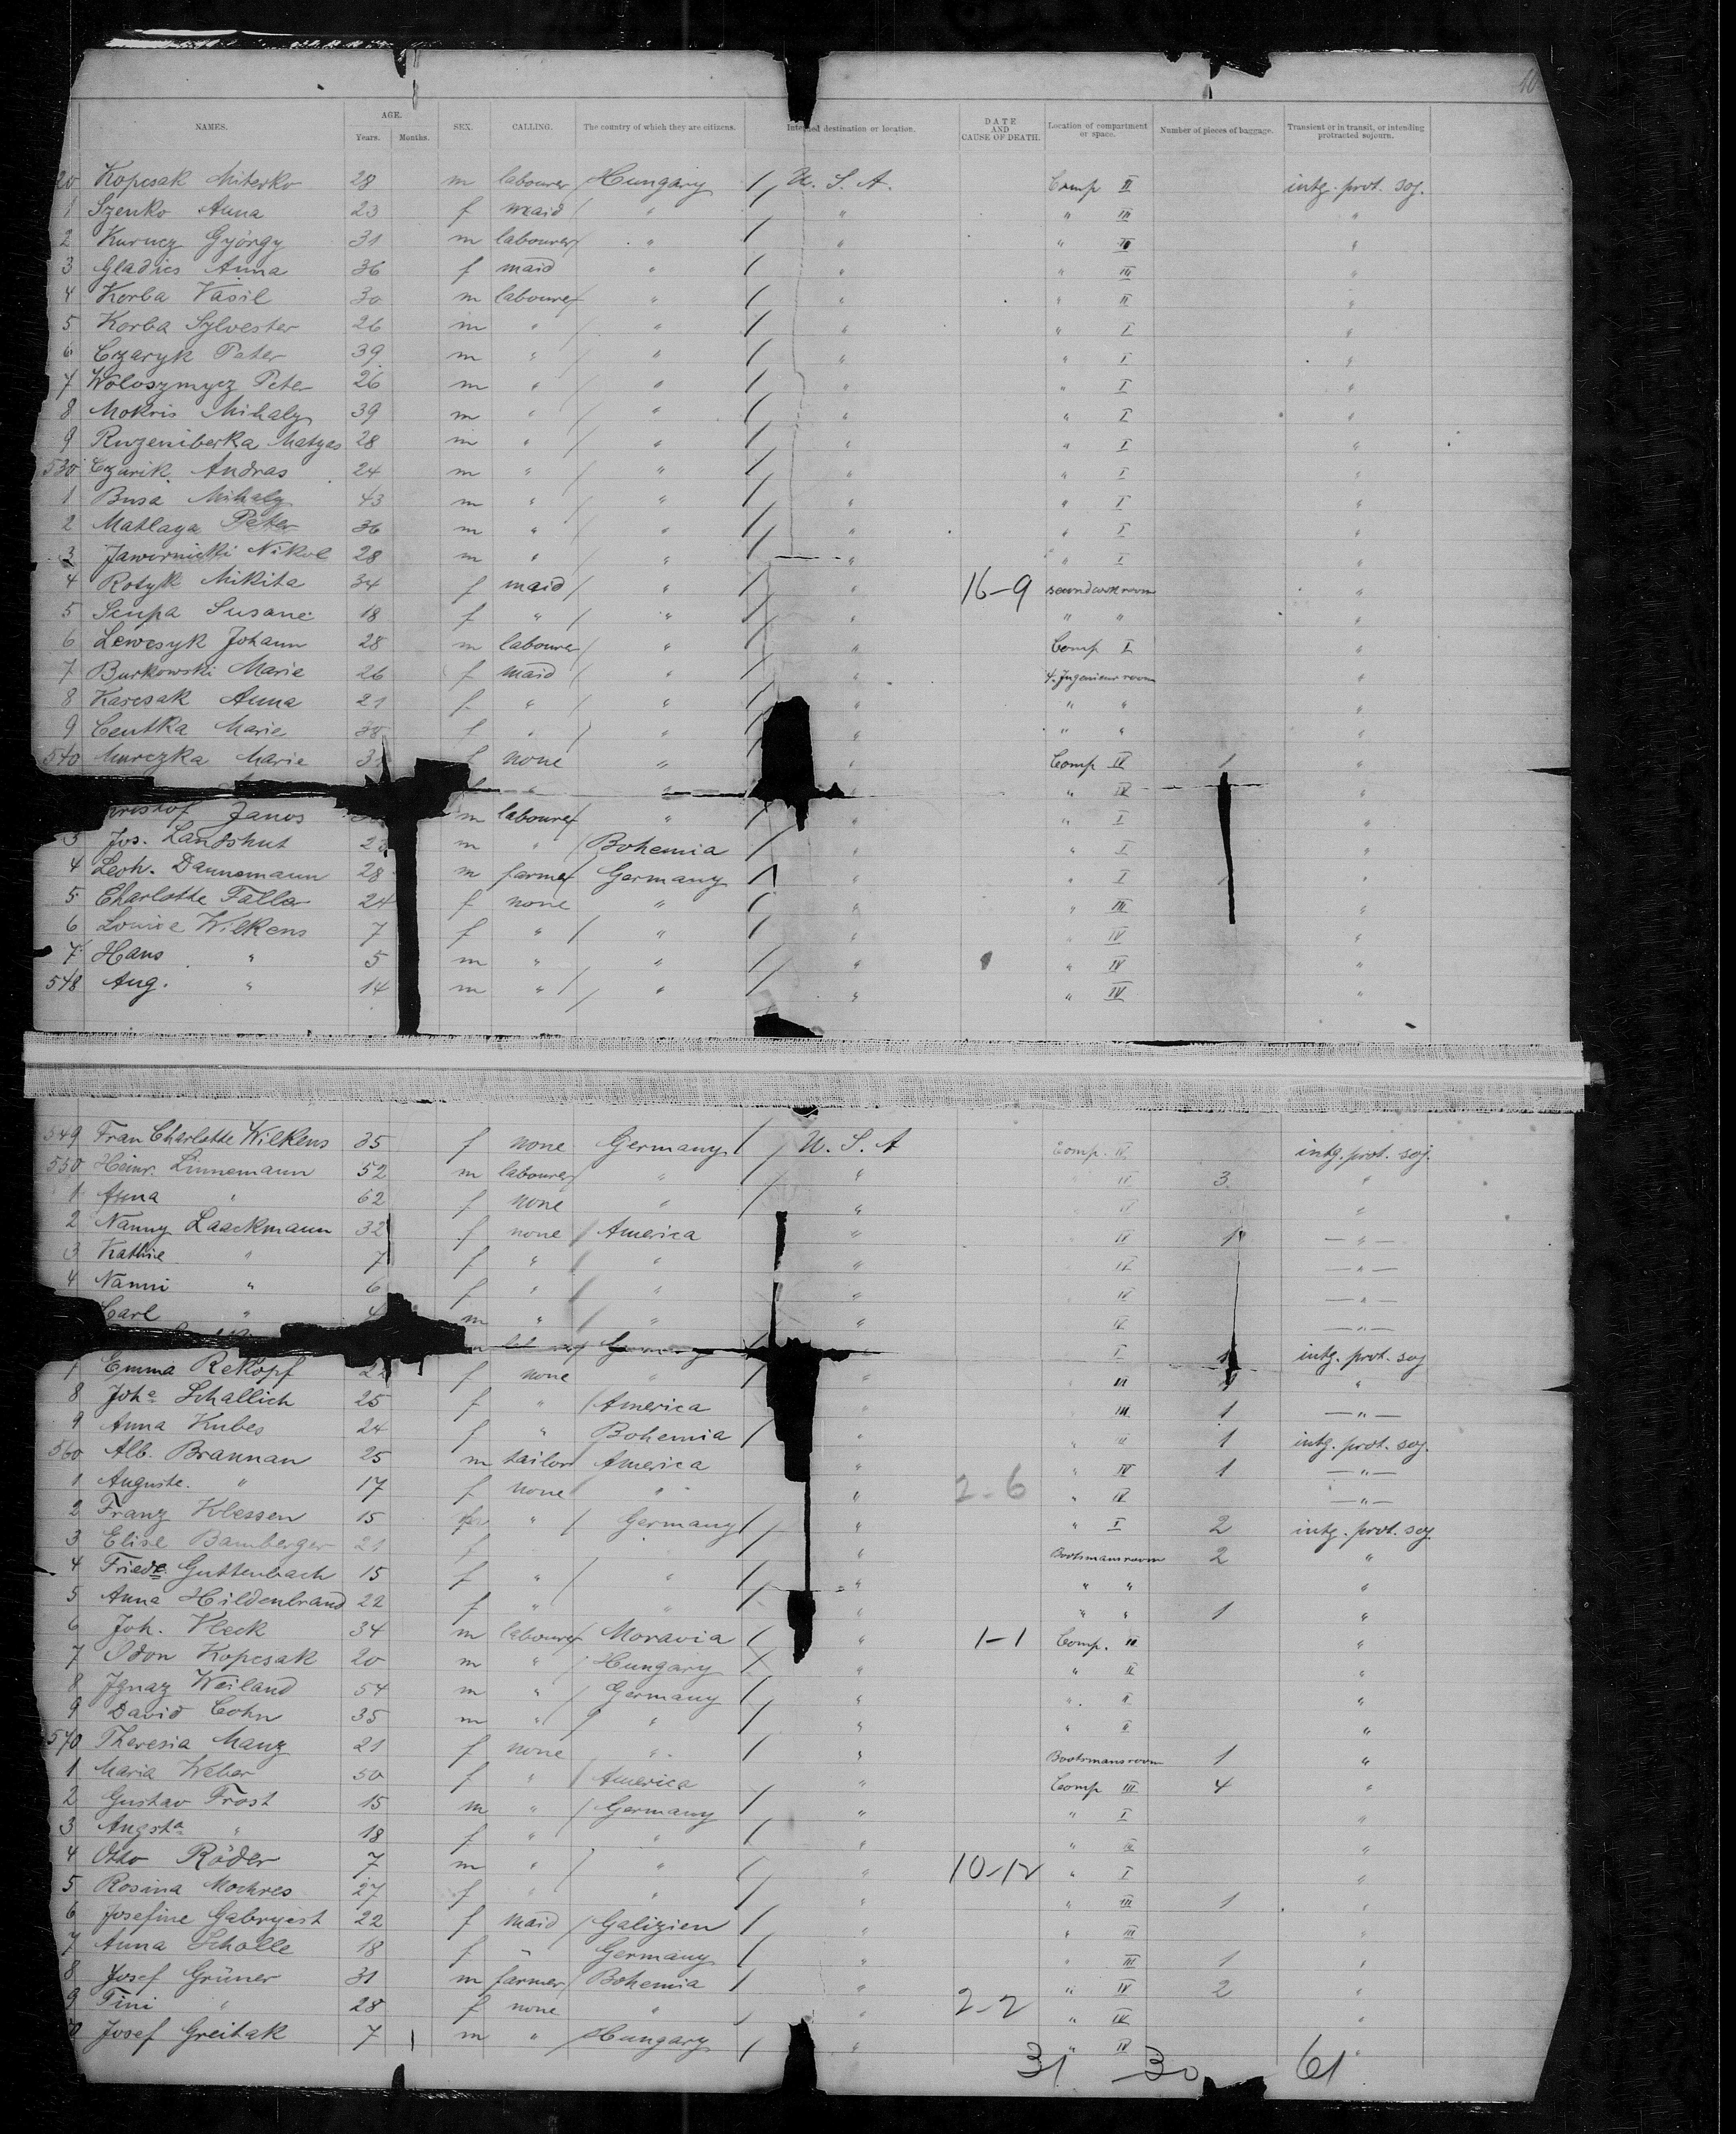 NAMES. AGE. Years. Months. SEX. CALLING. The country of which they are citizens. Intended destination or location. DATE AND CAUSE OF DEATH. Location of compartment or space. Number of pieces of baggage. Transient or in transit, or intending protracted sojourn.
20 Kopcsak Miterko 28 m labourer Hungary U. S. A. Comp II intg. prot. soj.
1 Szenko Anna 23 f maid " " " III "
2 Kurucz György 31 m labourer " " " II "
3 Gladics Anna 36 f maid " " " III "
4 Korba Vasil 30 m labourer " " " II "
5 Korba Sylvester 26 m " " " " I "
6 Czaryk Peter 39 m " " " " I "
7 Woloszmycz Peter 26 m " " " " I "
8 Mokris Mihaly 39 m " " " " I "
9 Ruzeniberka Matyas 28 m " " " " I "
530 Czurik Andras 24 m " " " " I "
1 Busa Mihaly 43 m " " " " I "
2 Matlaga Peter 36 m " " " " I "
3 Jawornicki Nikol 28 m " " " " I "
4 Rotyk Mikita 34 f maid " " 16-9 "
5 Scupa Susane 18 f " " " " " "
6 Lewcsyk Johann 28 m labourer " " Comp I "
7 Burkowski Marie 26 f maid " " 4. Ingenieur room "
8 Karcsak Anna 21 f " " " " " "
9 Centka Marie 38 f " " " " " "
540 Murczka Marie f none " " Comp IV 1 "
" " " " IV "
Janos m labourer " " " I "
3 Jos. Landshut m " Bohemia " " I "
4 Leoh. Dannemann 28 m farmer Germany " " I "
5 Charlotte Faller 24 f none " " " III "
6 Louise Wilkens 7 f " " " " IV "
7 Hans " 5 m " " " " IV "
548 Aug. " 14 m " " " " IV "
549 Frau Charlotte Wilkens 35 f none Germany U. S. A Comp. IV intg. prot. soj.
550 Heinr. Linnemann 52 m labourer " " IV 3 "
1 Anna " 62 f none " " IV "
2 Nanny Laackmann 32 f none America " IV 1 — " —
3 Kathie " 7 f " " " IV — " —
4 Nanni " 6 f " " " IV — " —
Carl " m " " " IV — " —
I intg. prot. soj
7 Emma Rekopf f none " " III "
8 Joha Schallich 25 f " America " III 1 — " —
9 Anna Kubes 24 f " Bohemia " " III 1 intg. prot. soj.
560 Alb. Brannan 25 m tailor America " " IV 1 — " —
1 Auguste " 17 f none " " 2-6 " IV — " —
2 Franz Klessen 15 " Germany " " I 2 intg. prot. soj.
3 Elise Bamberger 21 f " Bootsmansroom 2 "
4 Friede Guttenbach 15 f " " " " " "
5 Anna Hildenbrand 22 f " " " " " 1 "
6 Joh. Fleck 34 m labourer Moravia " 1-1 Comp. II "
7 Odon Kopcsak 20 m " Hungary " " II "
8 Ignaz Weiland 54 m " Germany " " II "
9 David Cohn 35 m " " " " II "
570 Theresia Manz 21 f none " " Bootsmansroom 1 "
1 Maria Weber 50 f " America " Comp III 4 "
2 Gustav Frost 15 m " Germany " " I "
3 Augsta " 18 f " " " " III "
4 Otto Röder 7 m " " " 10-12 " I "
5 Rosina Mochres 27 f " " " " III 1 "
6 Josefine Gabryjest 22 f maid Galizien " " III "
7 Anna Scholle 18 f " Germany " " III 1 "
8 Josef Grüner 31 m farmer Bohemia " " IV 2 "
9 Tini " 28 f none " " 2-2 " IV "
Josef Greitak 7 m " Hungary " " IV "
31 30 61